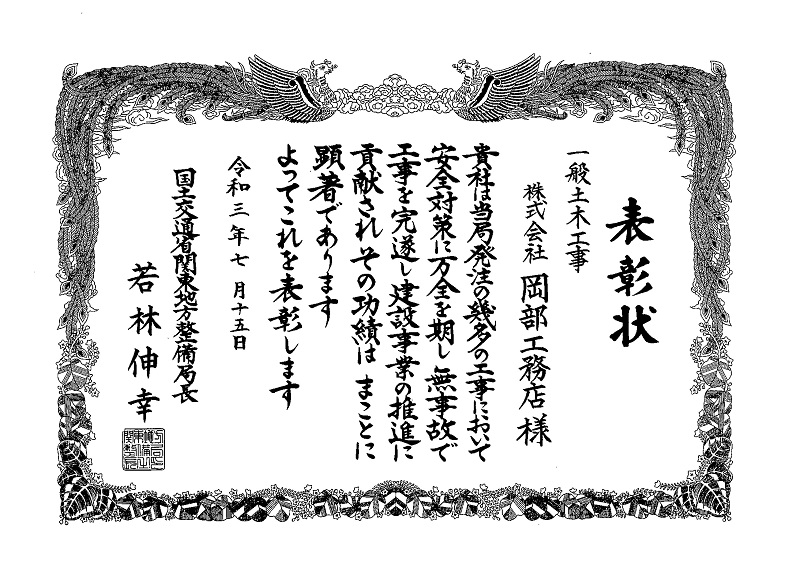 表彰状
一般土木工事
株式会社 岡部工務店 様
貴社は当局発注の幾多の工事において
安全対策に万全を期し無事故で
工事を完遂し建設事業の推進に
貢献されその功績は まことに
顕著であります
よってこれを表彰します
令和三年七月十五日
国土交通省関東地方整備局長
若林伸幸